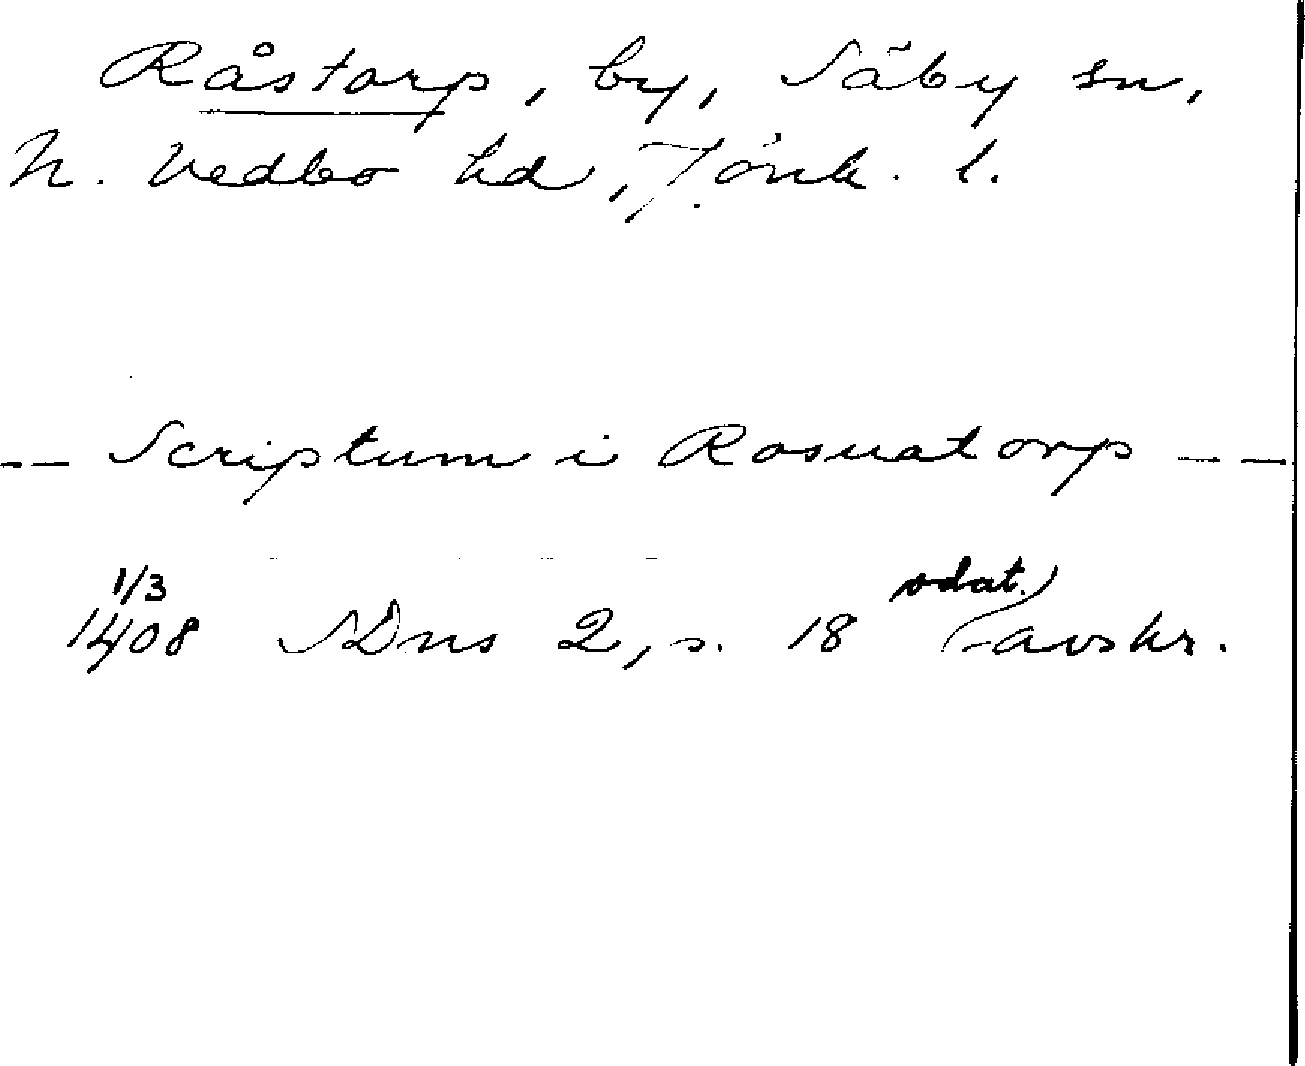 Råstorp, by, Säby sn,
N. Vedbo hd, Jönk. l.
-- Scriptum i Rosuatorp --
1/3
1408 SDns 2, s. 18 odat. avskr.